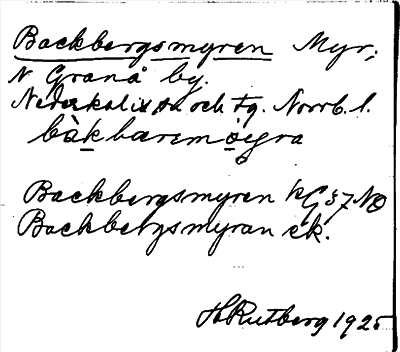 Backbergsmyren Myr;
N Granå by.
Nederkalix sn och tg. Norrb. l.
Backbergsmyren kG 57 NO
Backbergsmyran ek.
H Rutberg 1925